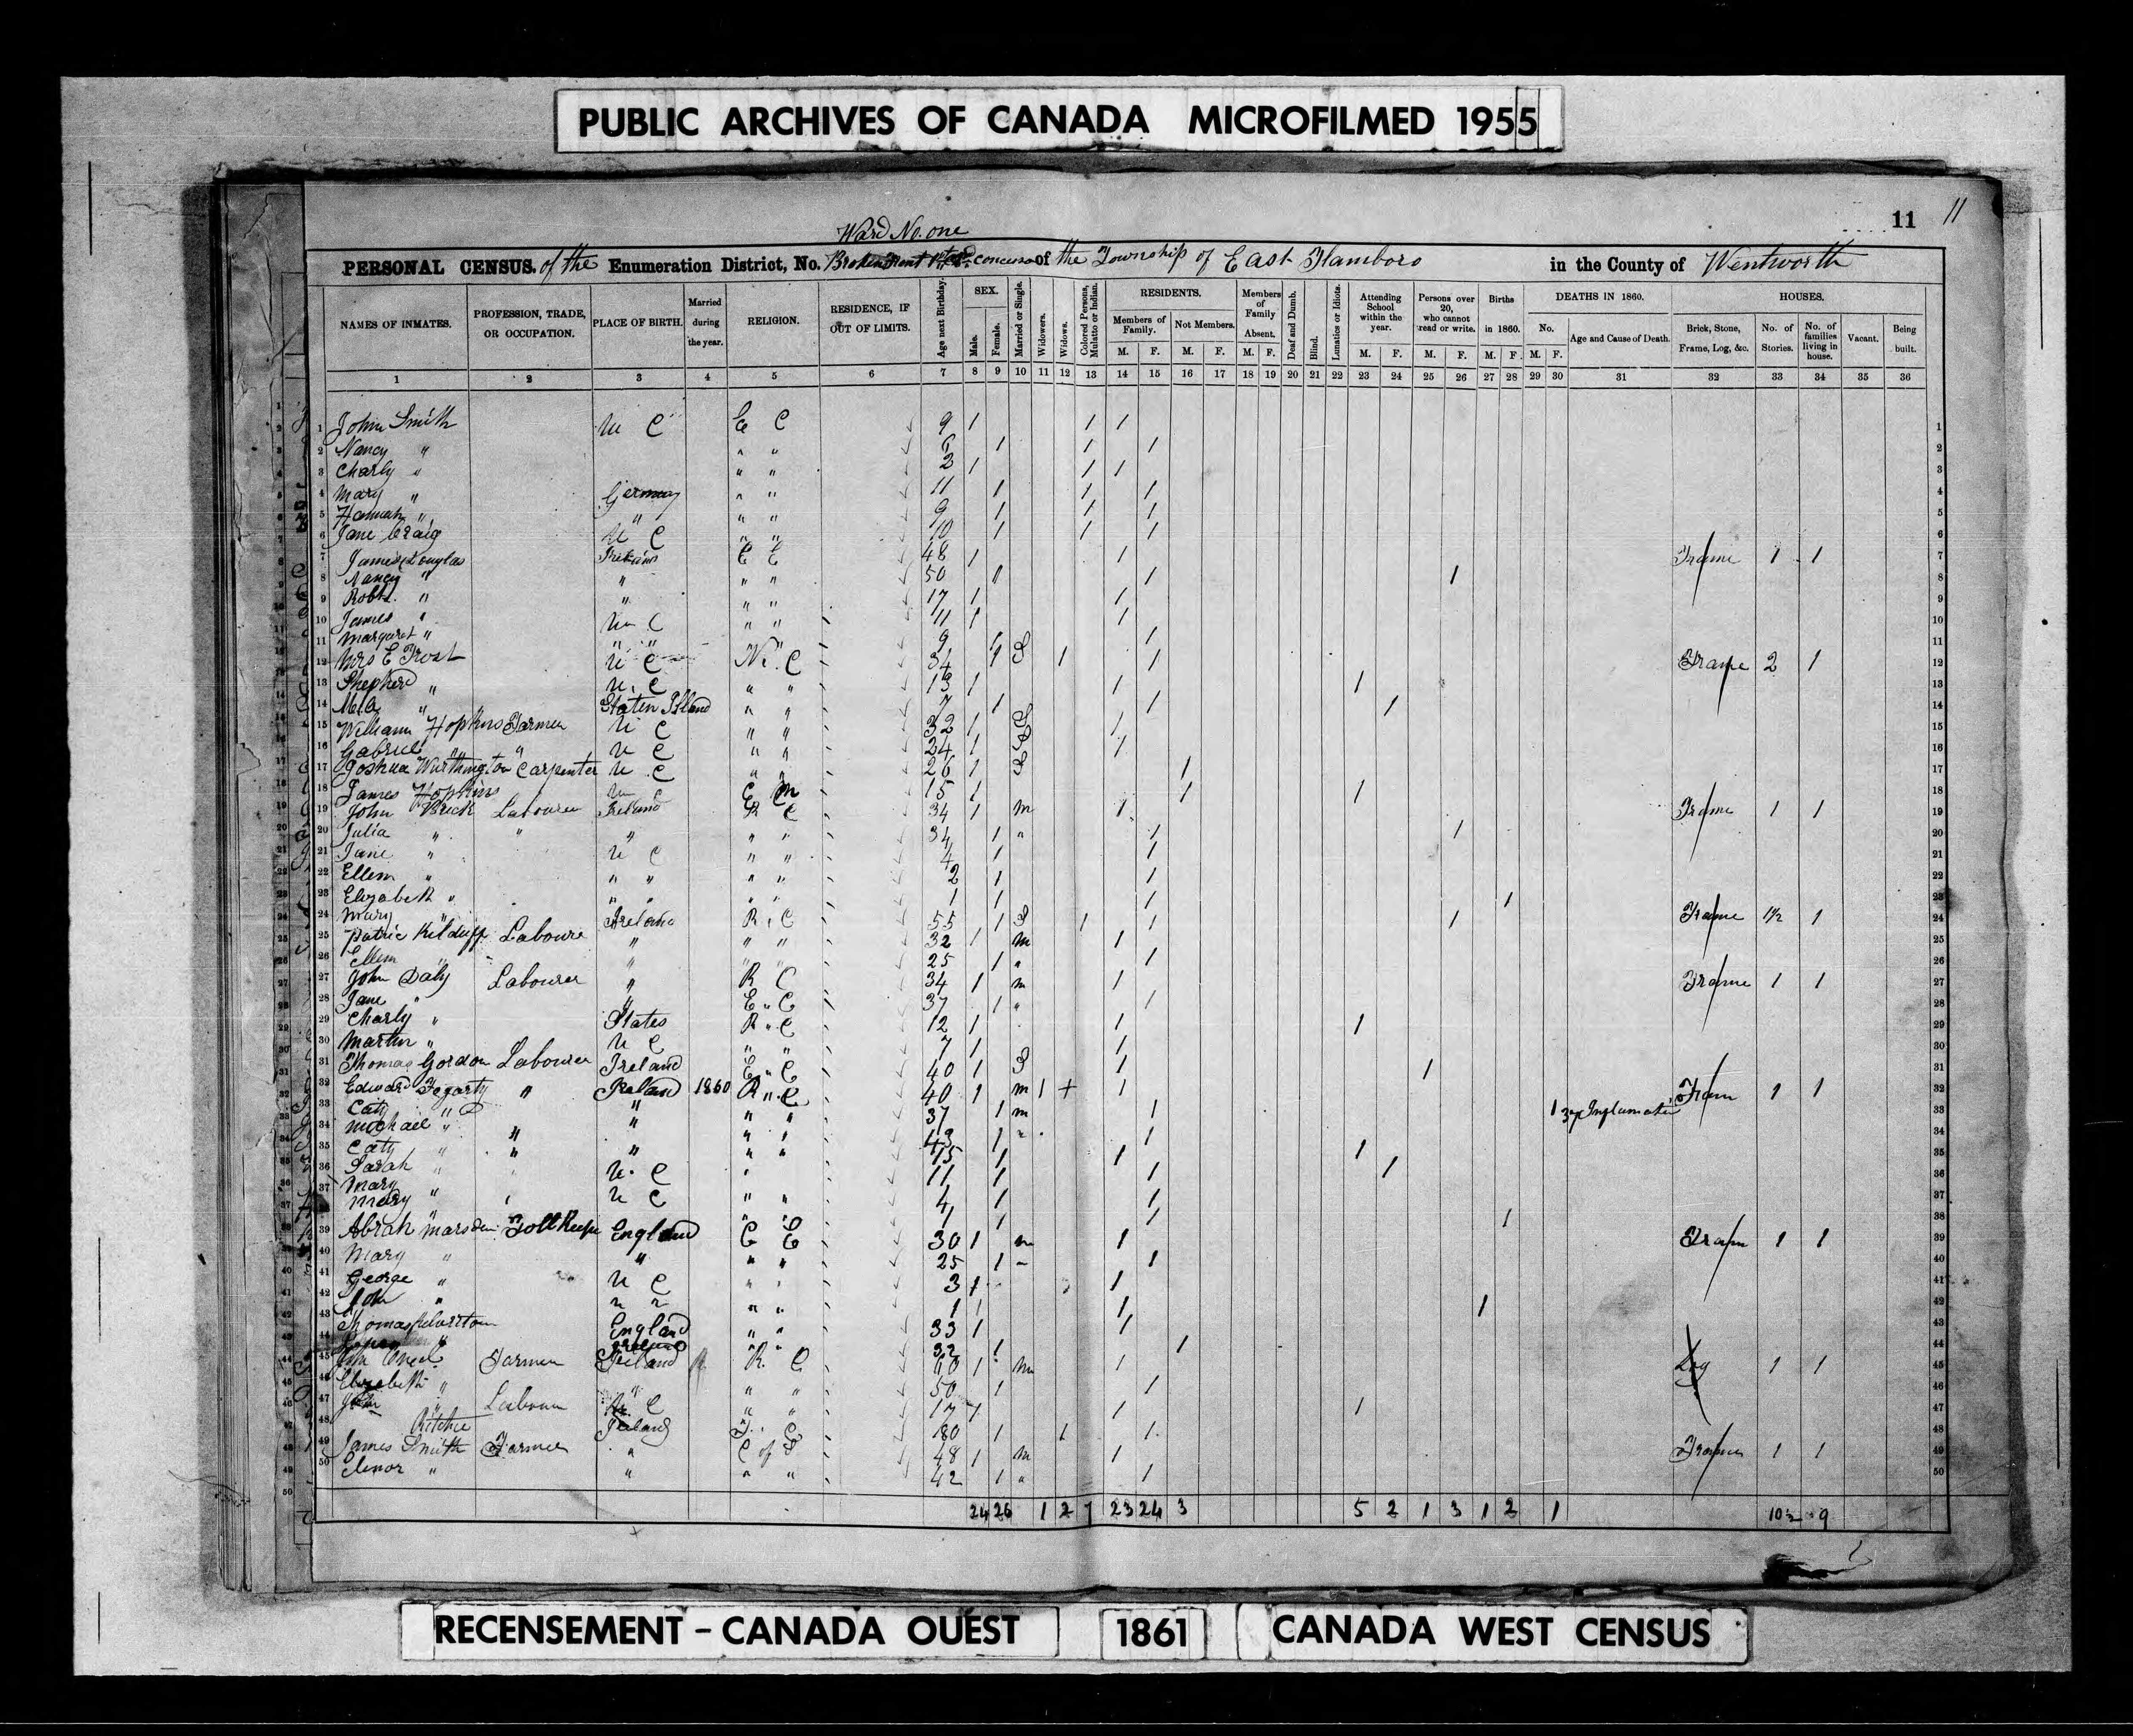 PUBLIC ARCHIVES OF CANADA MICROFILMED 1955
11 11
Ward No. one
PERSONAL CENSUS. of the Enumeration District, No. of the Township of East Flamboro in the County of Wentworth
NAMES OF INMATES. PROFESSION, TRADE, OR OCCUPATION. PLACE OF BIRTH. Married during the year. RELIGION. RESIDENCE, IF OUT OF LIMITS. Age next Birthday. SEX. Male. Female. Married or Single. Widowers. Widows. Colored Persons, Mulatto or Indian. RESIDENTS. Members of Family. Not Members. M. F. M. F. Members of Family Absent. M. F. Deaf and Dumb. Blind. Lunatics or Idiots. Attending School within the year. M. F. Persons over 20, who cannot read or write. M. F. Births in 1860. M. F. DEATHS IN 1860. No. M. F. Age and Cause of Death. HOUSES. Brick, Stone, Frame, Log, &c. No. of Stories. No. of families living in house. Vacant. Being built.
1 2 3 4 5 6 7 8 9 10 11 12 13 14 15 16 17 18 19 20 21 22 23 24 25 26 27 28 29 30 31 32 33 34 35 36
1 John Smith U C E C 9 1 1 1 1
2 Nancy " " " 1 1 1 2
3 Charly " " " 1 1 1 3
4 Mary " Germany " " 11 1 1 1 4
5 Hannah " " " " 9 1 1 1 5
6 Jane Craig U C " " 10 1 1 1 6
7 James Douglas Ireland E C 48 1 1 Frame 1 1 7
8 Nancy " " " " 50 1 1 1 8
9 Robt. " " " " 17 1 1 9
10 James " U C " " 11 1 1 10
11 Margaret " " " " " 9 1 1 11
12 Mrs E Frost U C C 34 1 S 1 1 Frame 2 1 12
13 Shepherd " U. C " " 13 1 1 1 13
14 " Staten Island " " 7 1 1 1 14
15 William Hopkins Farmer U C " " 32 1 S 1 15
16 Gabriel " U C " " 24 1 S 1 16
17 Joshua Worthington Carpenter U C " " 26 1 S 1 17
18 James Hopkins U C E M 15 1 1 1 18
19 John Brick Labourer Ireland R C 34 1 m 1 Frame 1 1 19
20 Julia " " " " " 34 1 " 1 1 20
21 Jane " U C " " 4 1 1 21
22 Ellen " " " " " 2 1 1 22
23 Elizabeth " " " " " 1 1 1 1 23
24 Mary " Ireland R C 55 1 S 1 1 1 Frame 1½ 1 24
25 Patric Kilduff Laboure " " " 32 1 m 1 25
26 Ellen " " " " 25 1 " 1 26
27 John Daly Labourer " R C 34 1 m 1 Frame 1 1 27
28 Jane " " E " C 37 1 " 1 28
29 Charly " States R " C 12 1 1 1 29
30 Martin " U C " " 7 1 1 30
31 Thomas Gordon Labourer Ireland E " C 40 1 S 1 1 31
32 Edward Fegarty " Ireland 1860 R " C 40 1 m 1 + 1 Fram 1 1 32
33 Caty " " " " 37 1 m 1 1 33
34 Michael " " " " " 1 " 1 34
35 Caty " " " " " 15 1 1 1 35
36 Sarah " U. C 11 1 1 1 36
37 Mary " U C " " 4 1 1 37
Mary " " " 1 1 1 1 38
39 Abrah Marsden Toll Keepe England E C 30 1 m 1 Fram 1 1 39
40 Mary " " " " 25 1 1 40
41 George " U C " " 3 1 1 41
42 John " " " " " 1 1 1 1 42
43 Thomas England " " 33 1 1 43
44 " " " 32 1 1 44
45 Farmer Ireland R C 1 m 1 Log 1 1 45
46 Elizabeth " " " " 50 1 1 46
47 John " Labour U C " " 17 1 1 1 47
48 Ritchie Ireland C 80 1 1 1 48
49 James Smith Farmer " C of S 48 1 m 1 Frame 1 1 49
50 Elenor " " " " 42 1 " 1 50
24 26 1 2 7 23 24 3 5 2 1 3 1 2 1 10½ 9
RECENSEMENT - CANADA OUEST 1861 CANADA WEST CENSUS